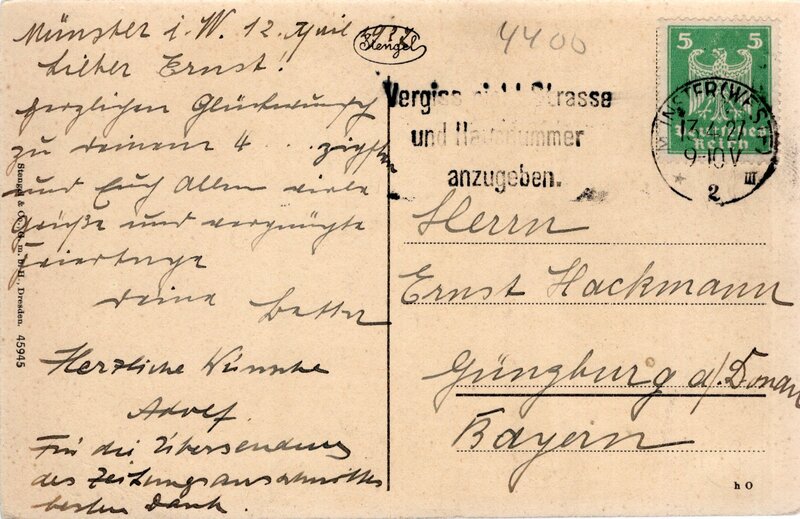 Münster i. W. 12. April 1927
Lieber Ernst!
herzlichen Glückwunsch
zu deinem 4 . . . zigsten
und Euch Allen viele
Grüße und vergnügte
Feiertage
deine Betty
Herzliche Wünsche
Adolf.
Für die Übersendung
des Zeitungsausschnittes
besten Dank.
Stengel & Co., G. m. b. H., Dresden. 45945
Stengel
4400
Vergiss nicht Strasse
und Hausnummer
anzugeben.
5 5
Deutsches
Reich
MÜNSTER (WESTF)
13.4.27
9-10V
* 2 III
Herrn
Ernst Hackmann
Günzburg a/Donau
Bayern
h O